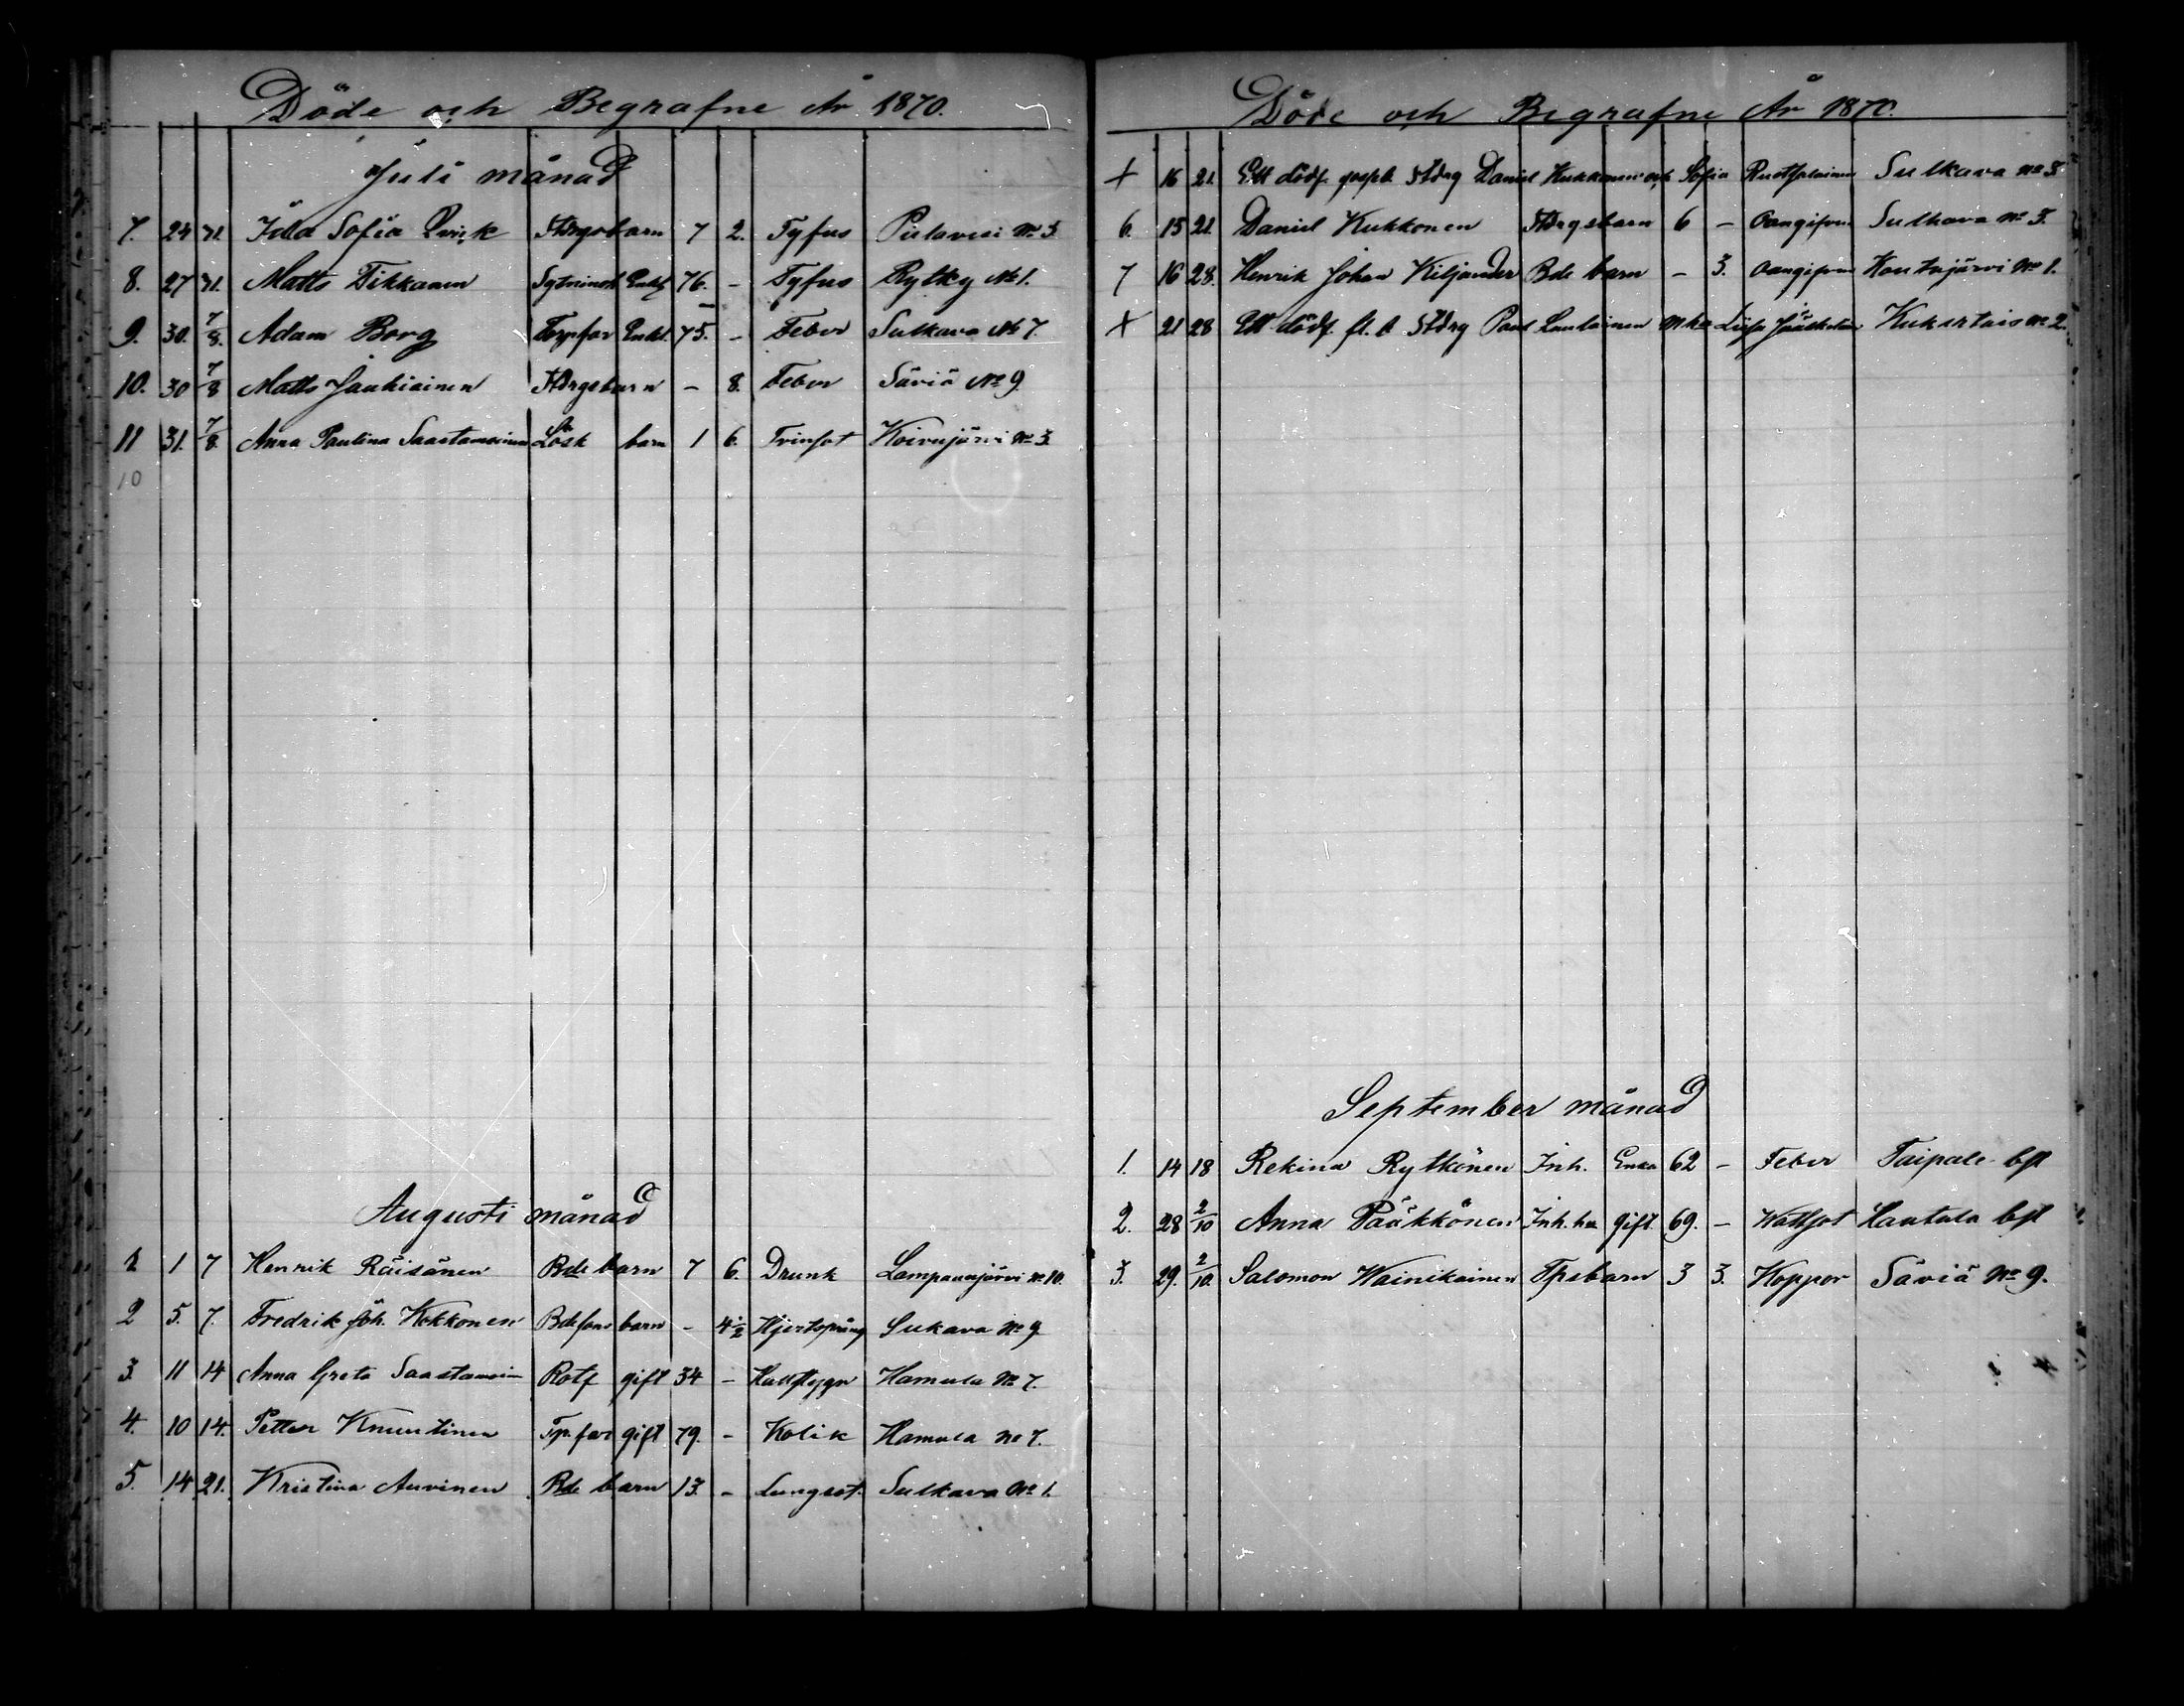 Döde och Begrafne År 1870.
Juli månad
7. 24 31. Ida Sofia Qvick Stdrgsbarn 7 2. Tyfus Pielavesi No 3.
8. 27 31. Matts Tikkanen Enkl. 76. - Tyfus Rytky No 1.
9. 30. 7/8. Adam Borg Torpfar Enkl. 75. - Feber Sulkava No 7.
10. 30 7/8 Matts Jauhiainen Stdrgsbarn - 8. Feber Säviä No 9.
11 31. 7/8. Anna Paulina Saastamoinen Lösk barn 1 6. Tvinsot Koivujärvi No 3.
10
Augusti månad
1 1 7 Henrik Räisänen Bde barn 7 6. Drunk Lampaanjärvi No 10.
2 5. 7. Fredrik Joh. Kokkonen Bdesons barn - 4 1/2 Hjertsprång Sukava No 9
3 11 14 Anna Greta Saastamoin Rotf gift 34 - Hamula No 7.
4. 10 14. Petter Knuutinen Tp. far gift 79. - Kolik Hamula No 7.
5. 14 21. Kristina Auvinen Bde barn 13. - Lungsot. Sulkava No 1.
Döde och Begrafne År 1870.
+ 16 21. Ett dödf. gossb. Stdrg Daniel Kukkonen och Sofia Sulkava No 5.
6. 15 21. Daniel Kukkonen Stdrgsbarn 6 - Oangifven Sulkava No 5.
7 16 28. Henrik Johan Kiljander Bde barn - 3. Oangifven Koutajärvi No 1.
+ 21 28 Ett dödf. fl. b Stdrg Paul Laulainen Liisa No 2.
September månad
1. 14 18 Rekina Rytkönen Inh. Enka 62 - Feber Taipale bst
2. 28 2/10 Anna Pääkkönen Inh. hu gift 69. - Wattsot Hautala bst
3. 29. 2/10. Salomon Wainikainen Tpsbarn 3 3. Koppor Säviä No 9.